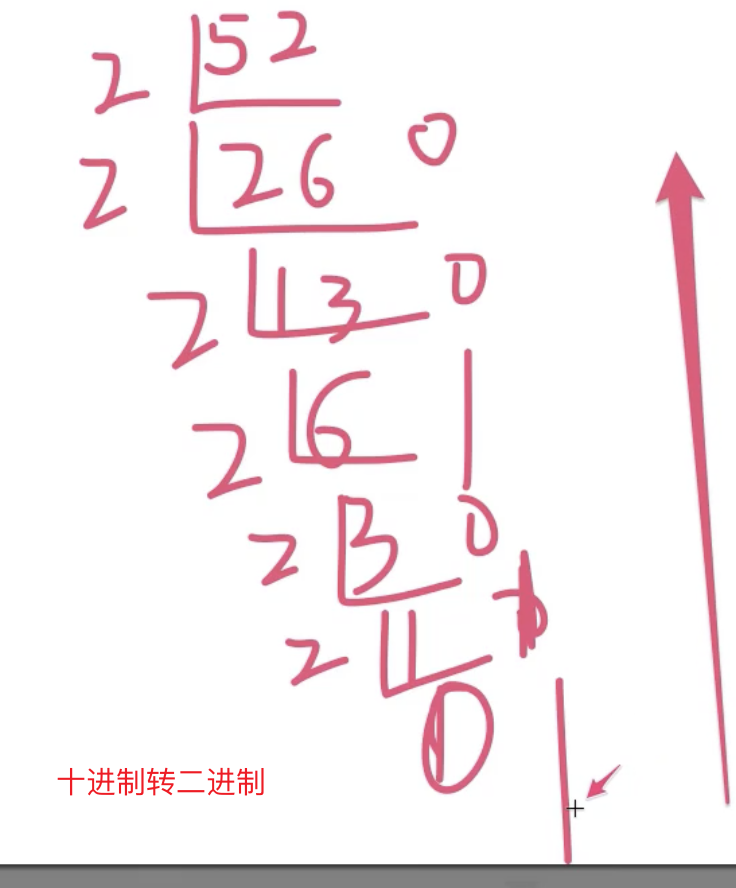 2 52
2 26 0
2 13 0
2 6 1
2 3 0
2 1
0
1
十进制转二进制